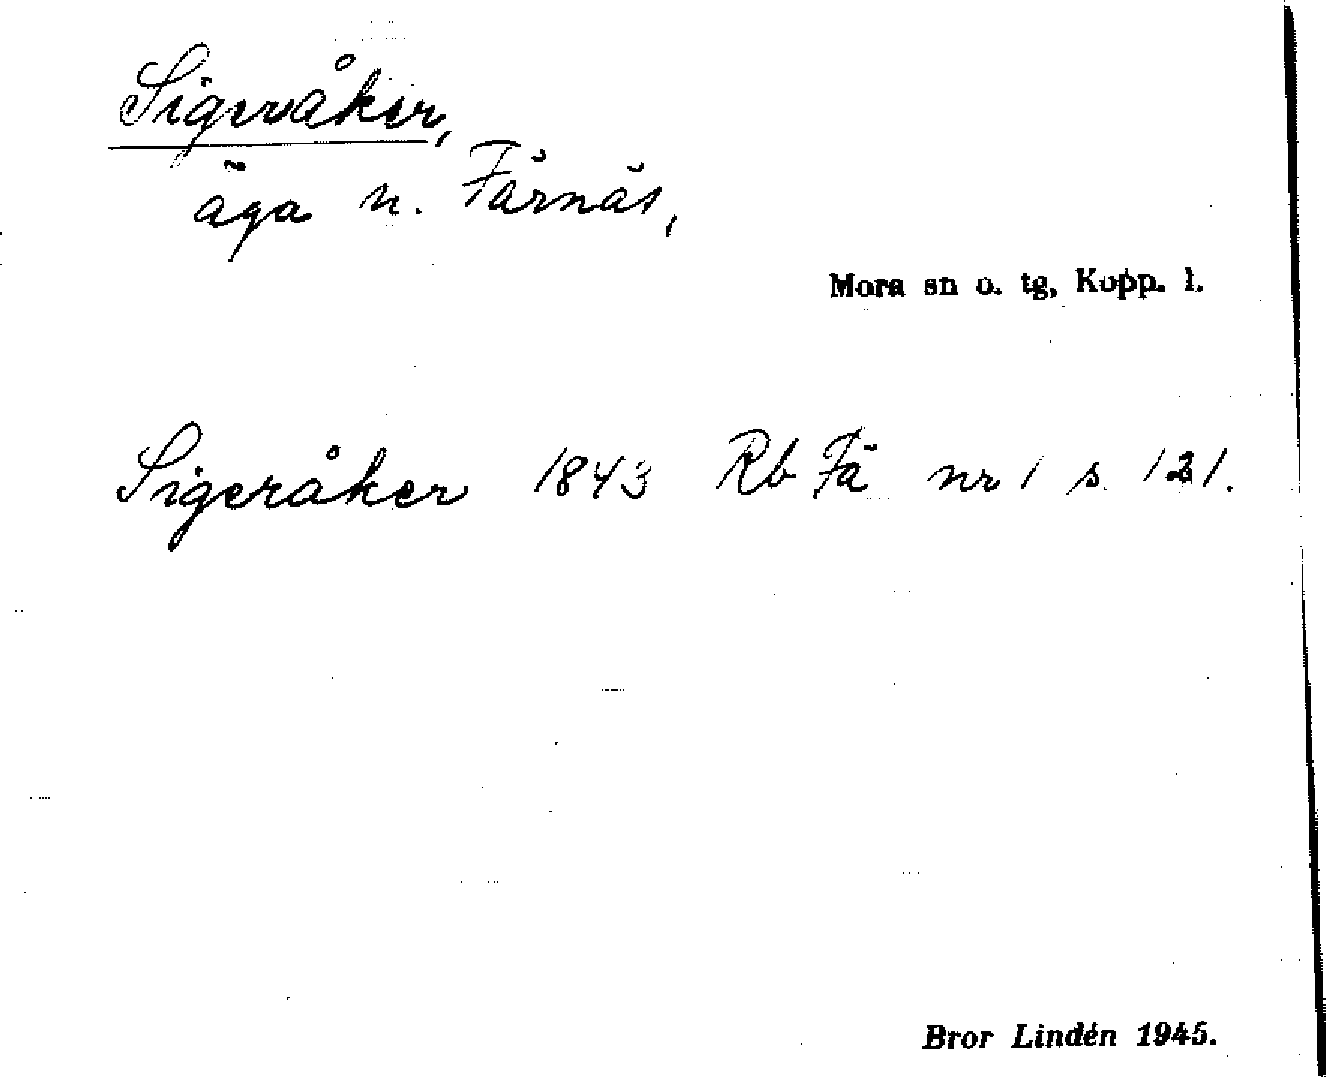 Sigeråker,
äga n. Färnäs,
Mora sn o. tg, Kopp. l.
Sigeråker 1843 Rb Fä nr 1 s 121.
Bror Lindén 1945.